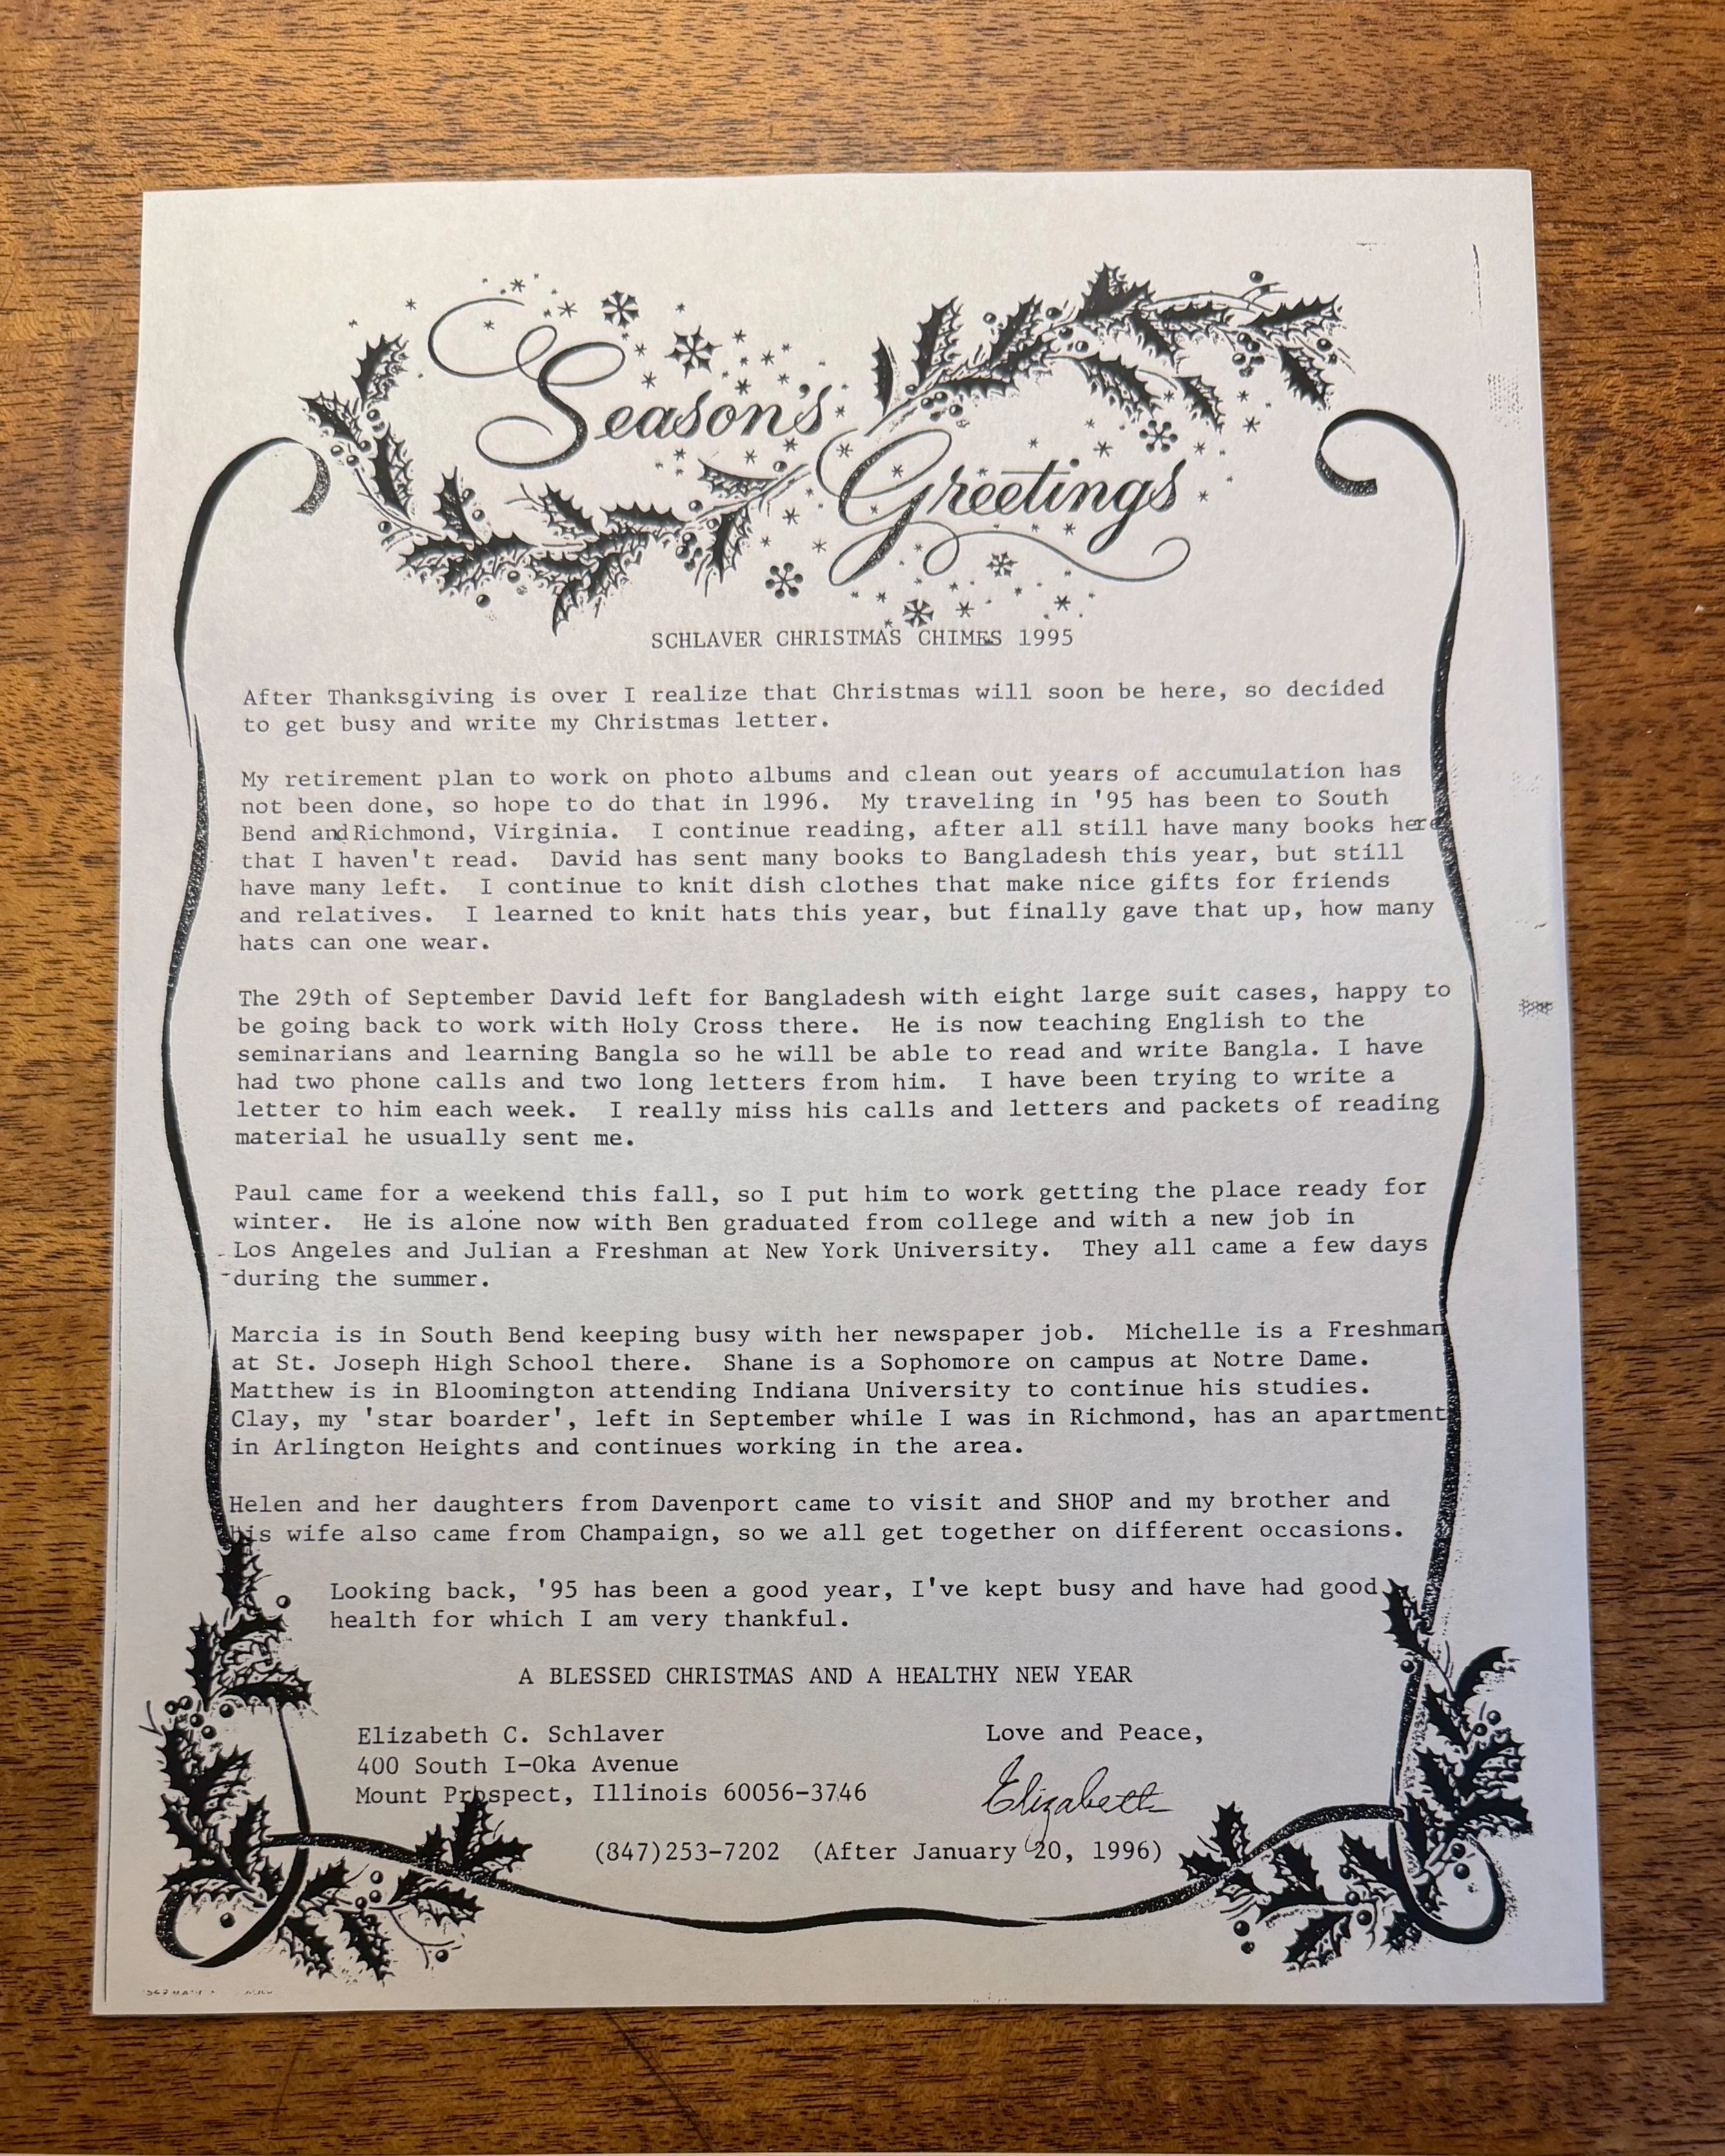 Season's
Greetings
SCHLAVER CHRISTMAS CHIMES 1995
After Thanksgiving is over I realize that Christmas will soon be here, so decided
to get busy and write my Christmas letter.
My retirement plan to work on photo albums and clean out years of accumulation has
not been done, so hope to do that in 1996.  My traveling in '95 has been to South
Bend and Richmond, Virginia.  I continue reading, after all still have many books here
that I haven't read.  David has sent many books to Bangladesh this year, but still
have many left.  I continue to knit dish clothes that make nice gifts for friends
and relatives.  I learned to knit hats this year, but finally gave that up, how many
hats can one wear.
The 29th of September David left for Bangladesh with eight large suit cases, happy to
be going back to work with Holy Cross there.  He is now teaching English to the
seminarians and learning Bangla so he will be able to read and write Bangla. I have
had two phone calls and two long letters from him.  I have been trying to write a
letter to him each week.  I really miss his calls and letters and packets of reading
material he usually sent me.
Paul came for a weekend this fall, so I put him to work getting the place ready for
winter.  He is alone now with Ben graduated from college and with a new job in
Los Angeles and Julian a Freshman at New York University.  They all came a few days
during the summer.
Marcia is in South Bend keeping busy with her newspaper job.  Michelle is a Freshman
at St. Joseph High School there.  Shane is a Sophomore on campus at Notre Dame.
Matthew is in Bloomington attending Indiana University to continue his studies.
Clay, my 'star boarder', left in September while I was in Richmond, has an apartment
in Arlington Heights and continues working in the area.
Helen and her daughters from Davenport came to visit and SHOP and my brother and
his wife also came from Champaign, so we all get together on different occasions.
Looking back, '95 has been a good year, I've kept busy and have had good
health for which I am very thankful.
A BLESSED CHRISTMAS AND A HEALTHY NEW YEAR
Elizabeth C. Schlaver
400 South I-Oka Avenue
Mount Prospect, Illinois 60056-3746
Love and Peace,
Elizabeth
(847)253-7202  (After January 20, 1996)